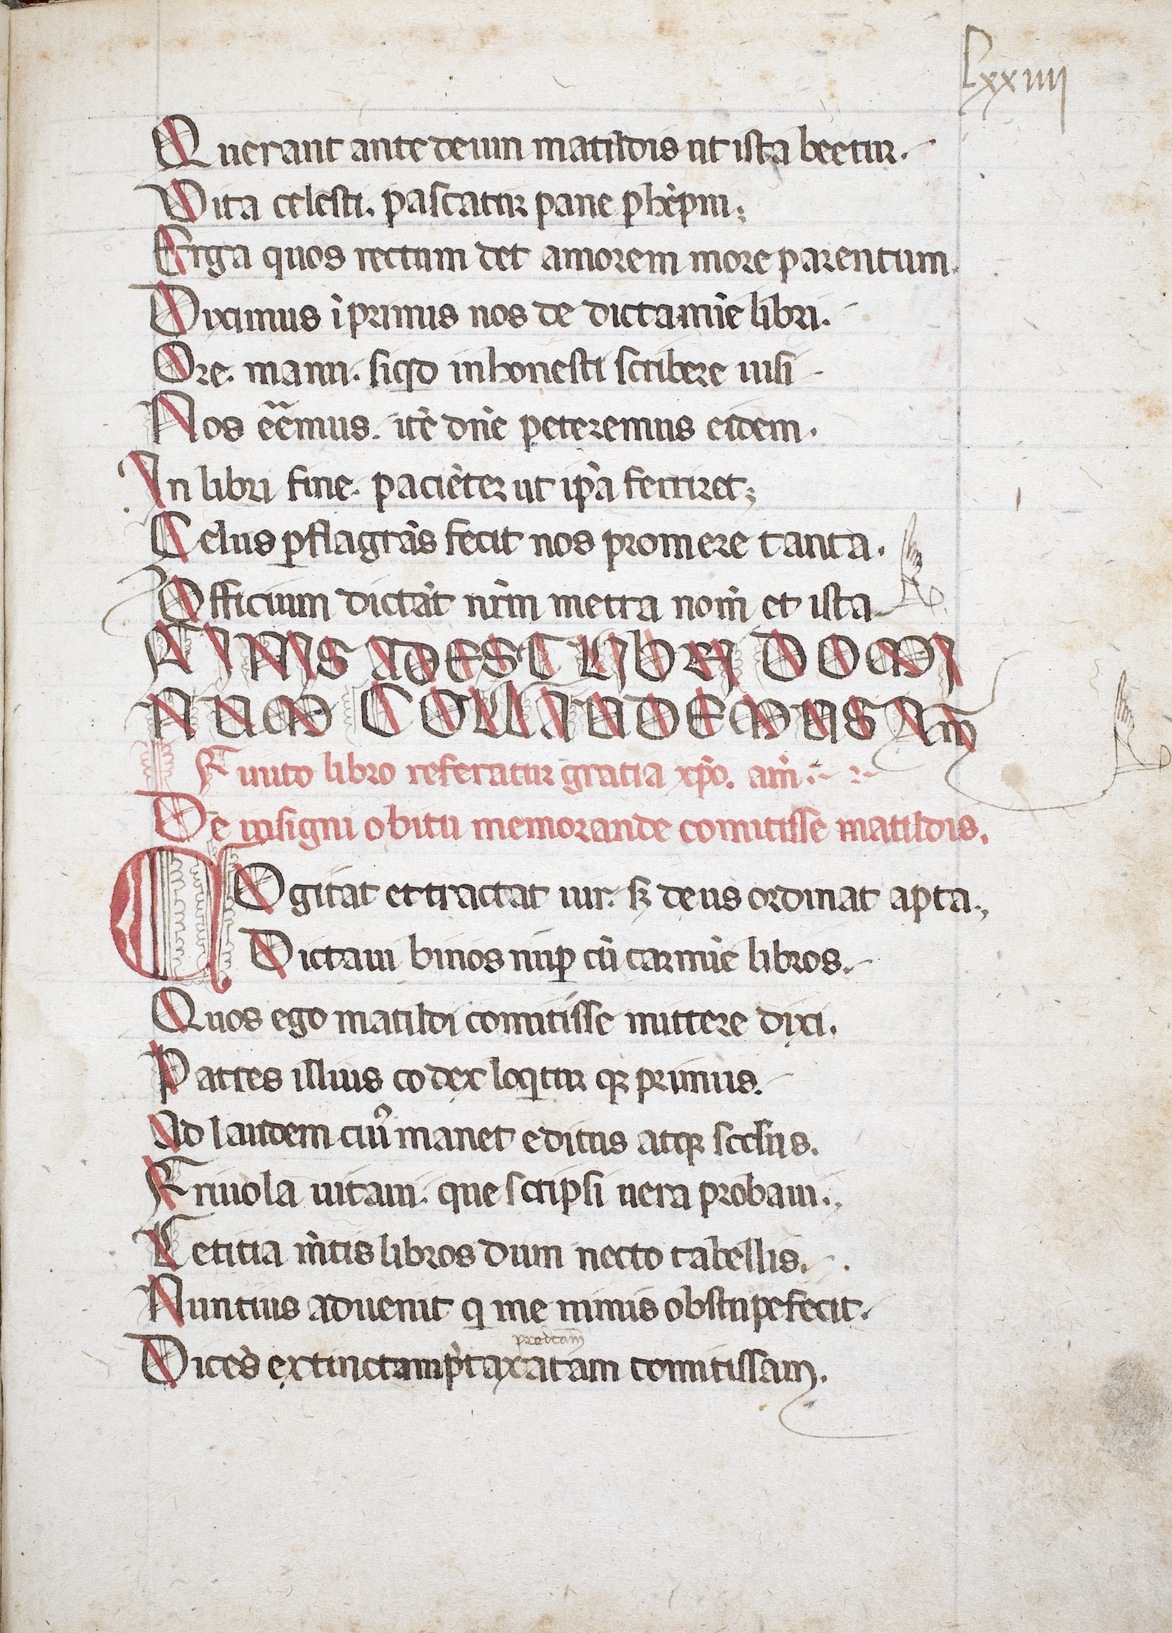 Lxxiiii
Querant ante deum matildis ut ista beetur.
Vita celesti. pascatur pane phẽpni;
Erga quos rectum det amorem more parentum.
Diximus ĩ primus nos de dictamĩe libri.
Ore. manu. siqd inhonesti scribere iusi
Nos eẽmus. itẽ dñe peteremus eidem.
In libri fine. paciẽter ut ip̃a ferriret;
Celus pflagrãs fecit nos promere tanta.
Officium dictãt nr̃m metra nom̃ et ista
FINIS ADEST LIbRI DOMI
NAM COLLAUDEMUS Am̃
Finito libro referatur gratia xp̃o. am̃.
De insigni obitu memorande comitisse matildis.
COgitat et tractat uir. sꝫ deus ordinat apta.
Dictaui binos nup cũ carmĩe libros.
Quos ego matildi comitisse mittere dixi.
Patres illius codex loqitur qꝫ primus.
Ad laudem cuiꝰ manet editus atqꝫ scd̃us.
Friuola uitaui. que scripsi uera probaui.
Letitia m̃tis libros dum necto tabellis.
Nuntius aduenit q me nimis obstupefecit.
prodcam
Dicẽs extinctam p̃taxatam comitissam.